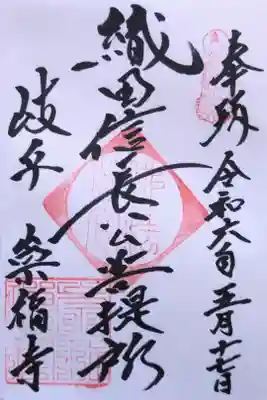 奉拝
令和六年五月十七日
織田信長公菩提所
岐阜
崇福寺